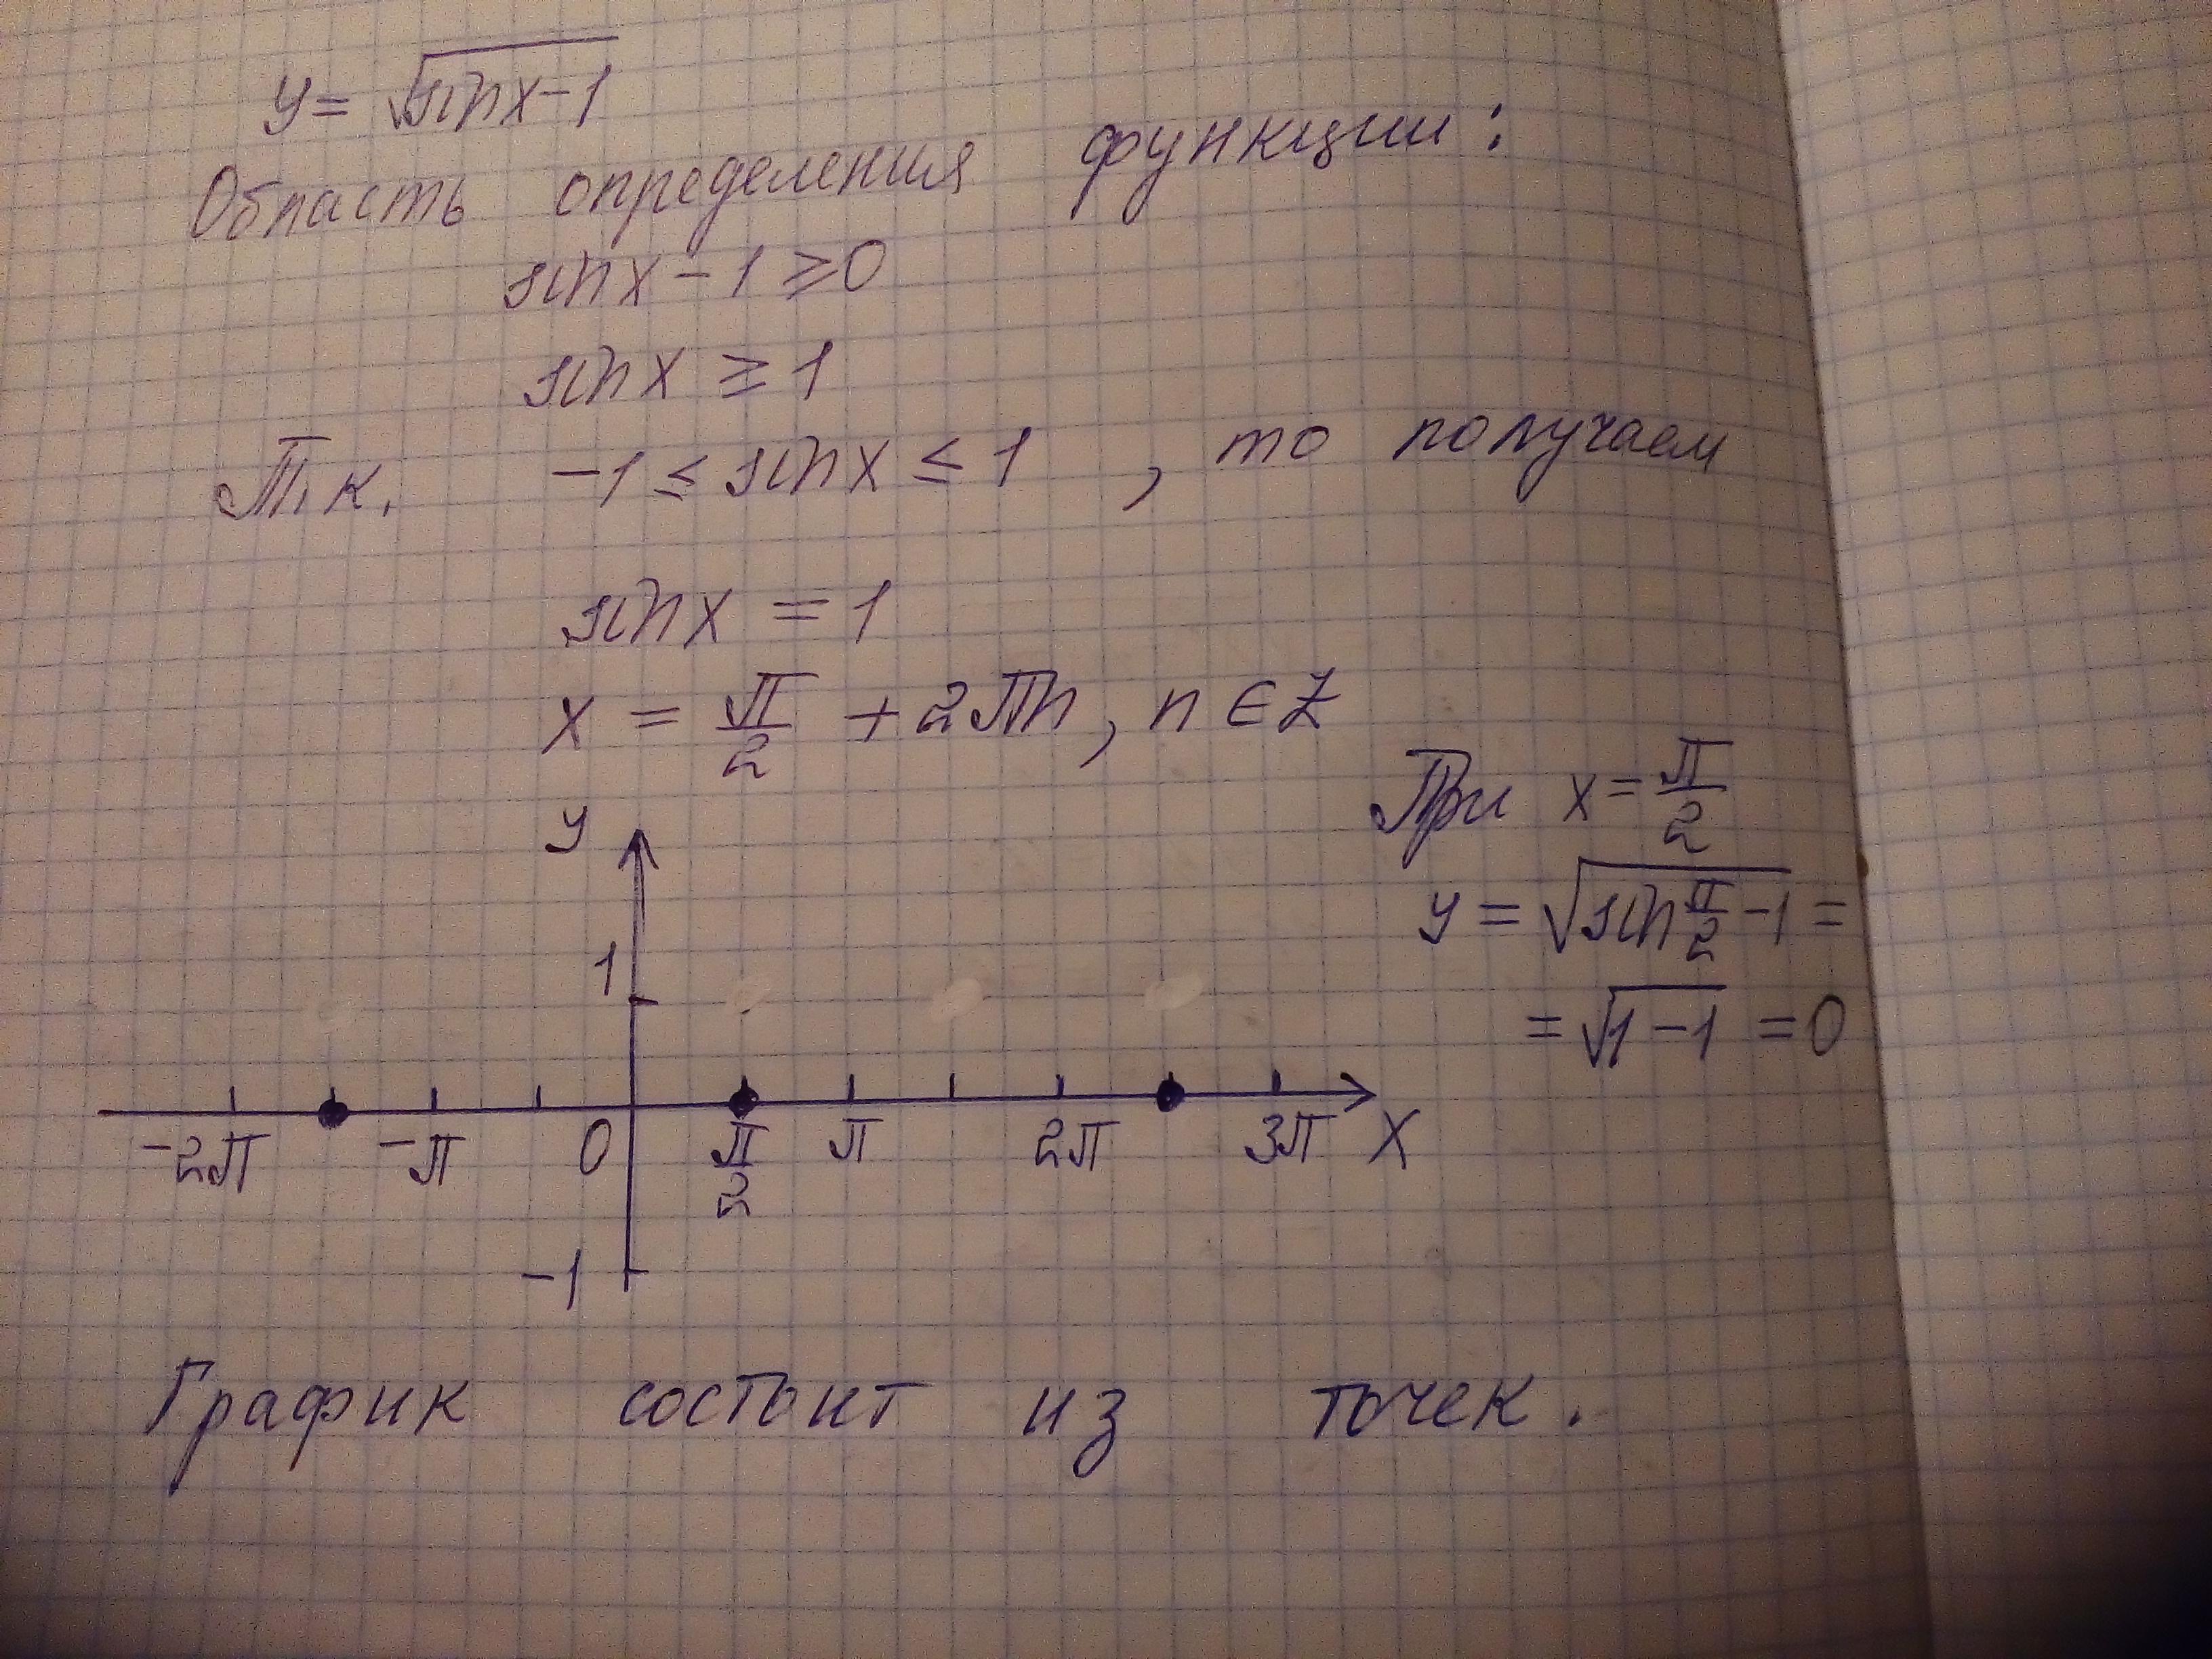 y = √(sin x - 1)
Область определения функции:
sin x - 1 ≥ 0
sin x ≥ 1
Т.к. -1 ≤ sin x ≤ 1, то получаем
sin x = 1
x = π/2 + 2πn, n ∈ Z
При x = π/2
y = √(sin π/2 - 1) =
= √(1 - 1) = 0
y
1
-2π -π 0 π/2 π 2π 3π x
-1
График состоит из точек.